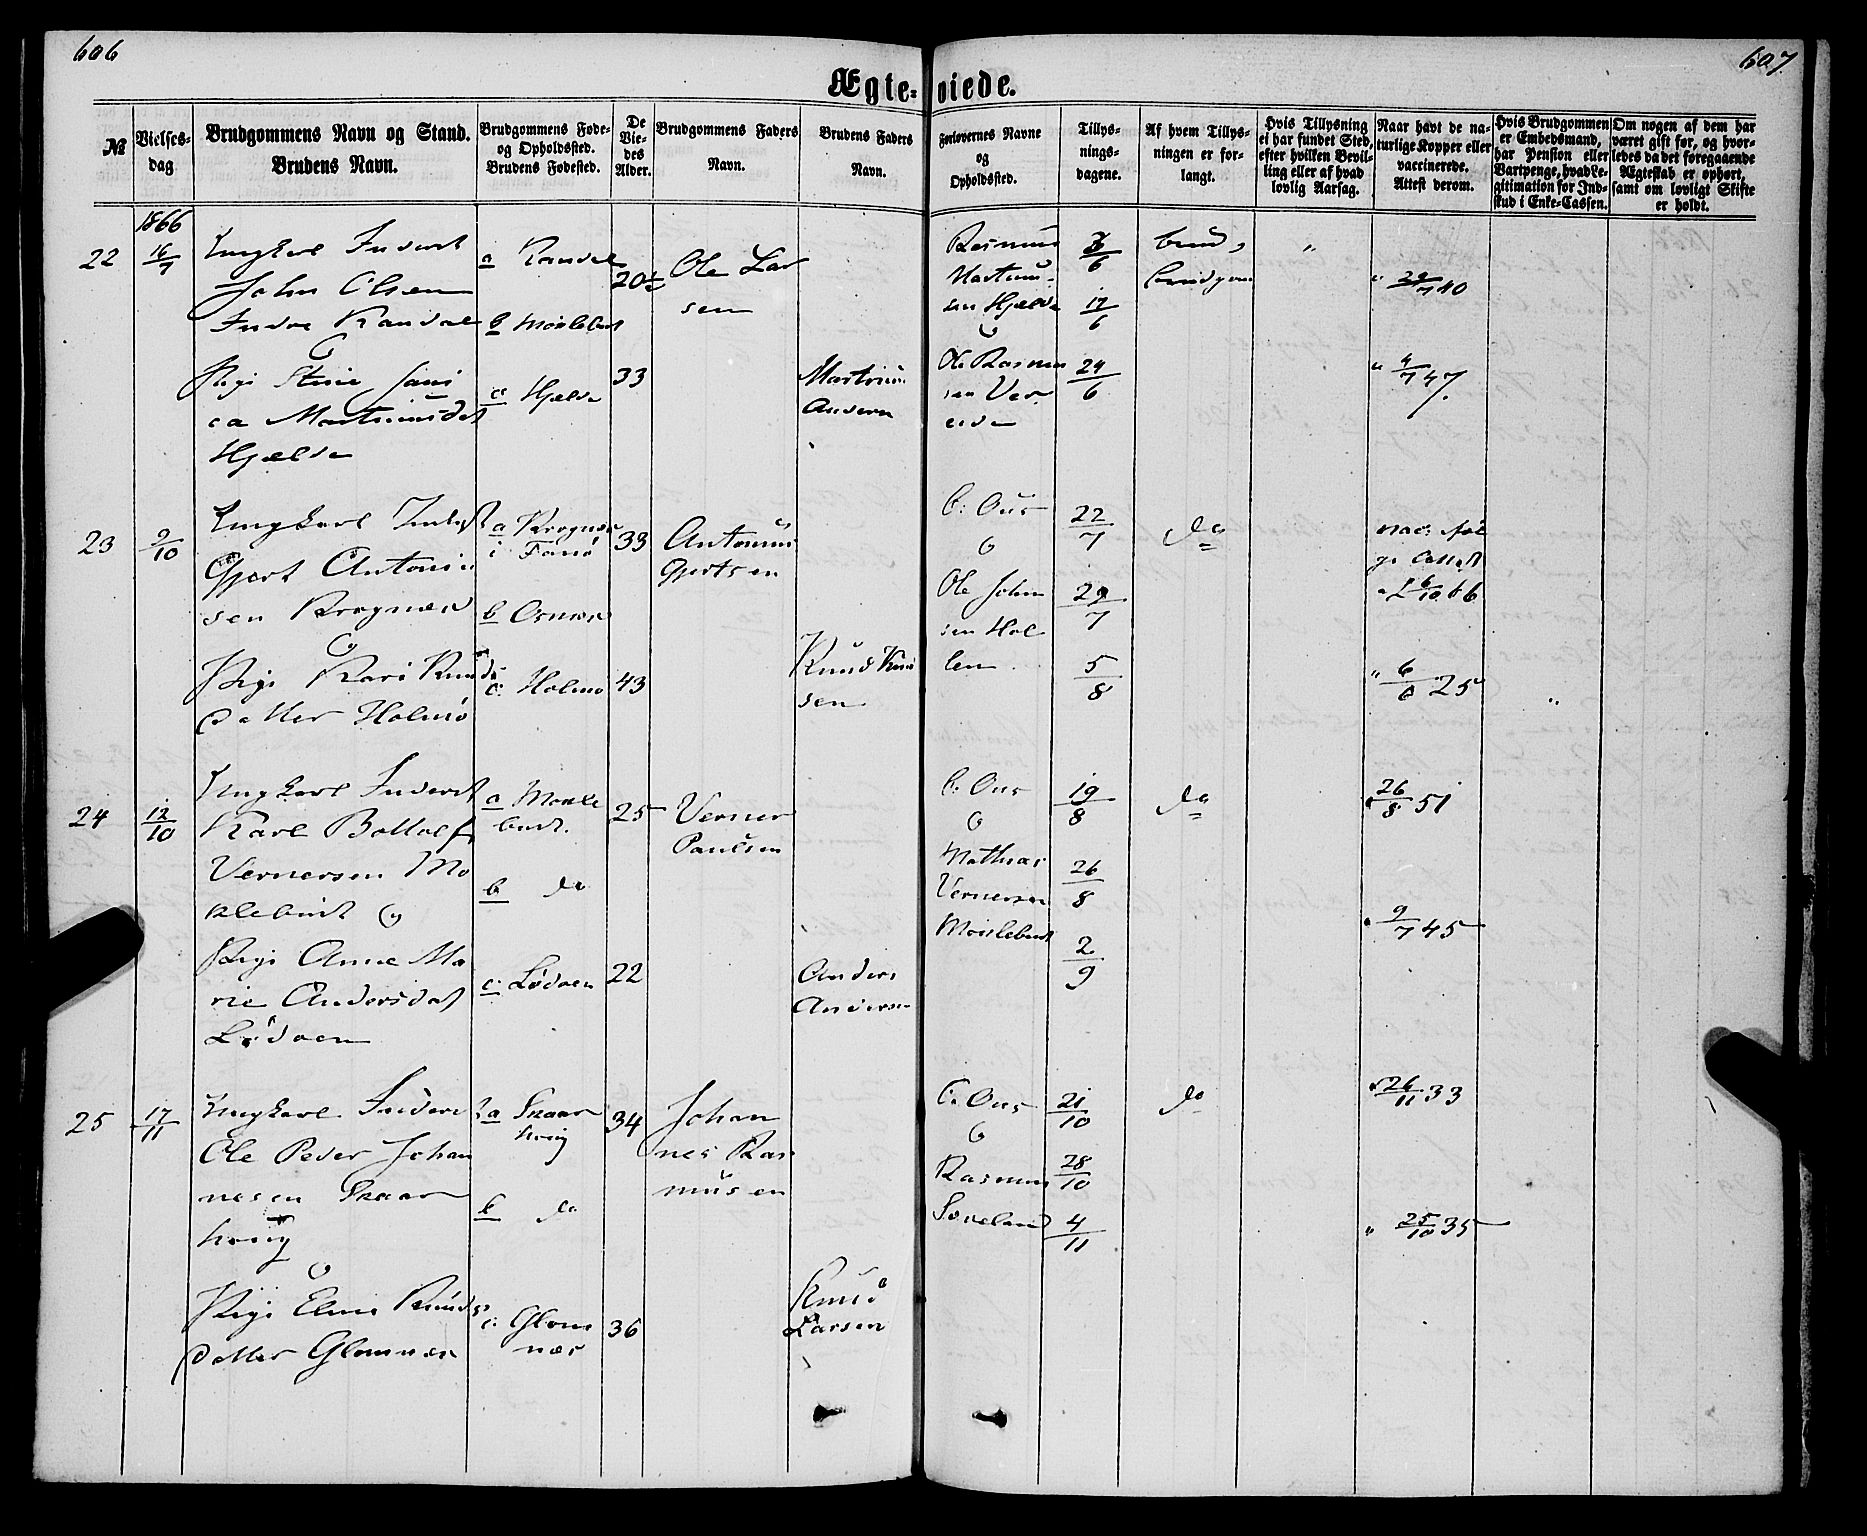 606
607
Ægte-viede.
№
Vielses-
dag
Brudgommens Navn og Stand.
Brudens Navn.
Brudgommens Føde-
og Opholdssted.
Brudens Fødested.
De
Vie-
des
Alder.
Brudgommens Faders
Navn.
Brudens Faders
Navn.
Forlovernes Navne
og
Opholdssted.
Tillys-
nings-
dagene.
Af hvem Tillys-
ningen er for-
langt.
Hvis Tillysning
ei har fundet Sted,
efter hvilken Bevil-
ling eller af hvad
lovlig Aarsag.
Naar havt de na-
turlige Kopper eller
vaccinerede.
Attest derom.
Hvis Brudgommen
er Embedsmand,
har Pension eller
Vartpenge, hvad Le-
gitimation for Ind-
skud i Enke-Cassen.
Om nogen af dem har
været gift før, og hvor-
ledes da det foregaaende
Ægteskab er ophørt,
samt om lovligt Skifte
er holdt.
1866
22
16/7
Ungkarl Inderst
John Olsen
Indre Randal
&
Pige Stine Jani
ca Martinusdat
Hjelde
a Randal
b Moslebust
c Hjelde
20½
33
Ole Lar
sen
Martinus
Andersen
Rasmus
Martinu-
sen Hjelde
&
Ole Rasmus
sen Ver
eide
3/6
17/6
24/6
brud,
brudgom
"
" 24/7 40
" 4/7 47.
23
9/10
Ungkarl Inderst
Gjert Antonie
sen Krognæs
&
Pige Kari Knuds
datter Holmø
a Krognæs
i Fanø
b Osnæs
c: Holmø
33
43
Antonius
Gjertsen
Knud Knud
sen
C: Ous
&
Ole John
sen Hol
len
22/7
29/7
5/8
do
vac: iføl
ge Attest
" 6/10 66
" 6/6 25
"
24
12/10
Ungkarl Inderst
Karl Bottolf
Vernersen Mo
slebust &
Pige Anne Ma
rie Andersdat
Lødøen
a Mosle
bust.
b do
c: Lødøen
25
22
Verner
Paulsen
Anders
Andersen
C: Ous
&
Mathias
Vernersen
Moslebust
19/8
26/8
2/9
do
" 26/8 51
" 9/7 45
25
17/11
Ungkarl Inderst
Ole Peder Johan
nesen Skaar
houg
&
Pige Eline Knuds
datter Glomnæs
a Skaar
houg
b do
c: Glom
næs
34
36
Johan
nes Ras
musen
Knud
Larsen
C: Ous
&
Rasmus
Soreland
21/10
28/10
4/11
do
" 26/11 33
" 25/10 35